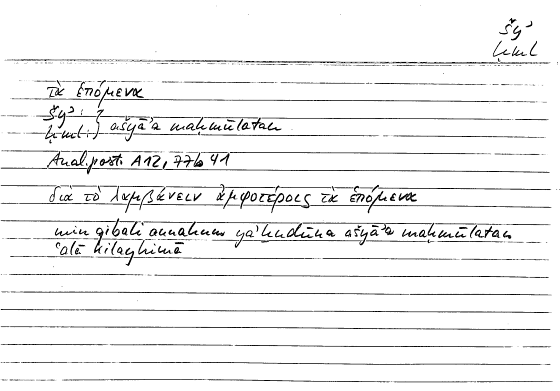 šyʾ
ḥml
τὰ ἑπόμενα
šyʾ : }
ḥml : } ašyāʾa maḥmūlatan
Anal. post. A 12, 77b 41
διὰ τὸ λαμβάνειν ἀμφοτέροις τὰ ἑπόμενα
min qibali annahum yaʾḫuḏūna ašyāʾa maḥmūlatan
ʿalā kilayhimā